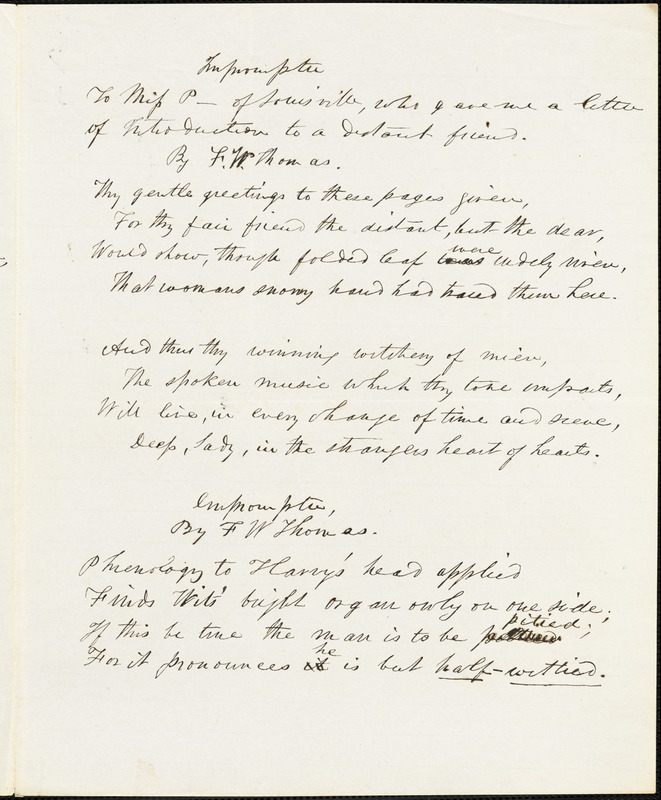 Impromptu
To Miss P— of Louisville, who gave me a letter
of Introduction to a distant friend.
By F. W. Thomas.
Thy gentle greetings to these pages given,
For thy fair friend the distant, but the dear,
Would show, though folded leaf was were widely riven,
That womans snowy hand had traced them here.
And thus thy winning witchery of mien,
The spoken music which thy tone imparts,
Will live, in every change of time and scene,
Deep, Lady, in the strangers heart of hearts.
Impromptu,
By F W Thomas.
Phrenology to Harry's head applied
Finds Wit's bright organ only on one side;
If this be true the man is to be pitied;
For it pronounces it he is but half-wittied.